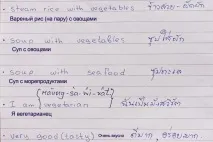 steam rice with vegetables
Вареный рис (на пару) с овощами
soup with vegetables ซุปใส่ผัก
Суп с овощами
soup with seafood ซุปทะเล
Суп с морепродуктами
I am vegetarian
Я вегетарианец
very good (tasty) Очень вкусно ดีมาก, อร่อยมาก